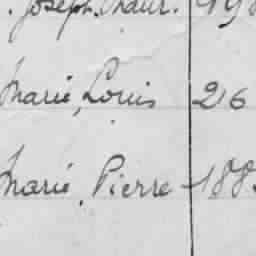 . Joseph. Maur. 198
Marie, Louis 216
Marie, Pierre - 188